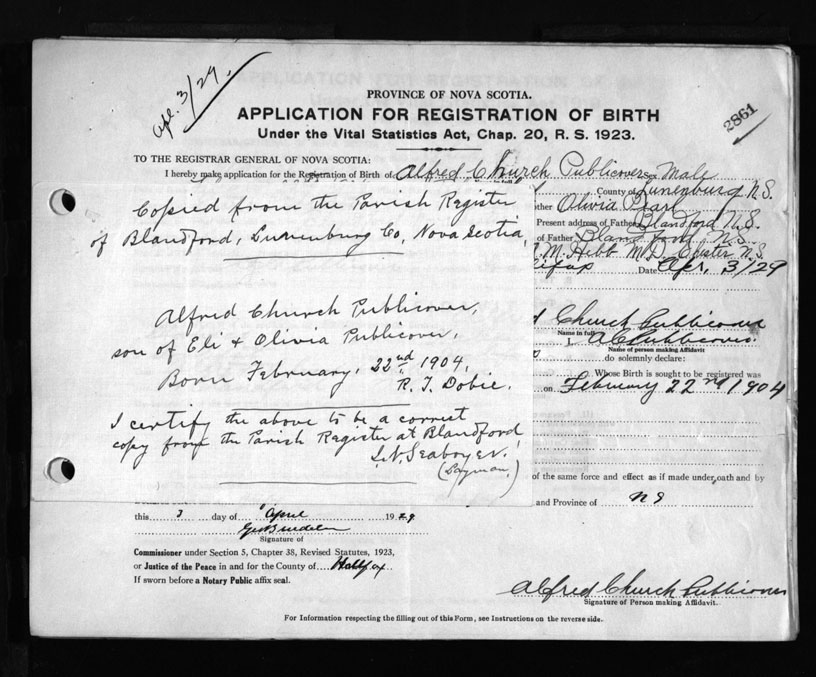 Apl. 3/29.
2861
PROVINCE OF NOVA SCOTIA.
APPLICATION FOR REGISTRATION OF BIRTH
Under the Vital Statistics Act, Chap. 20, R. S. 1923.
TO THE REGISTRAR GENERAL OF NOVA SCOTIA:
I hereby make application for the Registration of Birth of Alfred Church Publicover Sex Male
County of Lunenburg N.S.
Olivia Pearl
Present address of Father Blandford N.S.
of Father Blandford N.S.
M. Hebb M.D. Chester N.S.
Date Apr. 3/29
Copied from the Parish Register
of Blandford, Lunenburg Co, Nova Scotia,
Alfred Church Publicover,
son of Eli & Olivia Publicover,
Born February, 22nd 1904,
R. T. Dobie.
I certify the above to be a correct
copy from the Parish Register at Blandford
Seaboyer.
(Layman.)
Church Publicover
Name in full
I, A C Publicover
Name of person making Affidavit
do solemnly declare:
Whose Birth is sought to be registered was
on February 22nd 1904
of the same force and effect as if made under oath and by
and Province of N S
this 3 day of April 1929
Signature of
Commissioner under Section 5, Chapter 38, Revised Statutes, 1923,
or Justice of the Peace in and for the County of Halifax
If sworn before a Notary Public affix seal.
Alfred Church Publicover
Signature of Person making Affidavit.
For Information respecting the filling out of this Form, see Instructions on the reverse side.